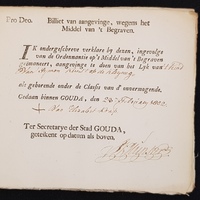 Pro Deo. Billet van aangevinge, wegens het
Middel van 't Begraven.
IK ondergeschreve verklare by dezen, ingevolge
van de Ordonnantie op 't Middel van 't Begraven
gemoneert, aangevinge te doen van het Lyk van 't kind
van
als gehorende onder de Classis van d' onvermogende.
Gedaan binnen GOUDA, den 26 February 1802
Ter Secretarye der Stad GOUDA,
geteikent op datum als boven.